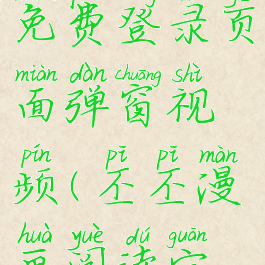 免费登录页
miàn dàn chuāng shì
面弹窗视
pín pī pī màn
频(丕丕漫
huà yuè dú guān
画阅读官